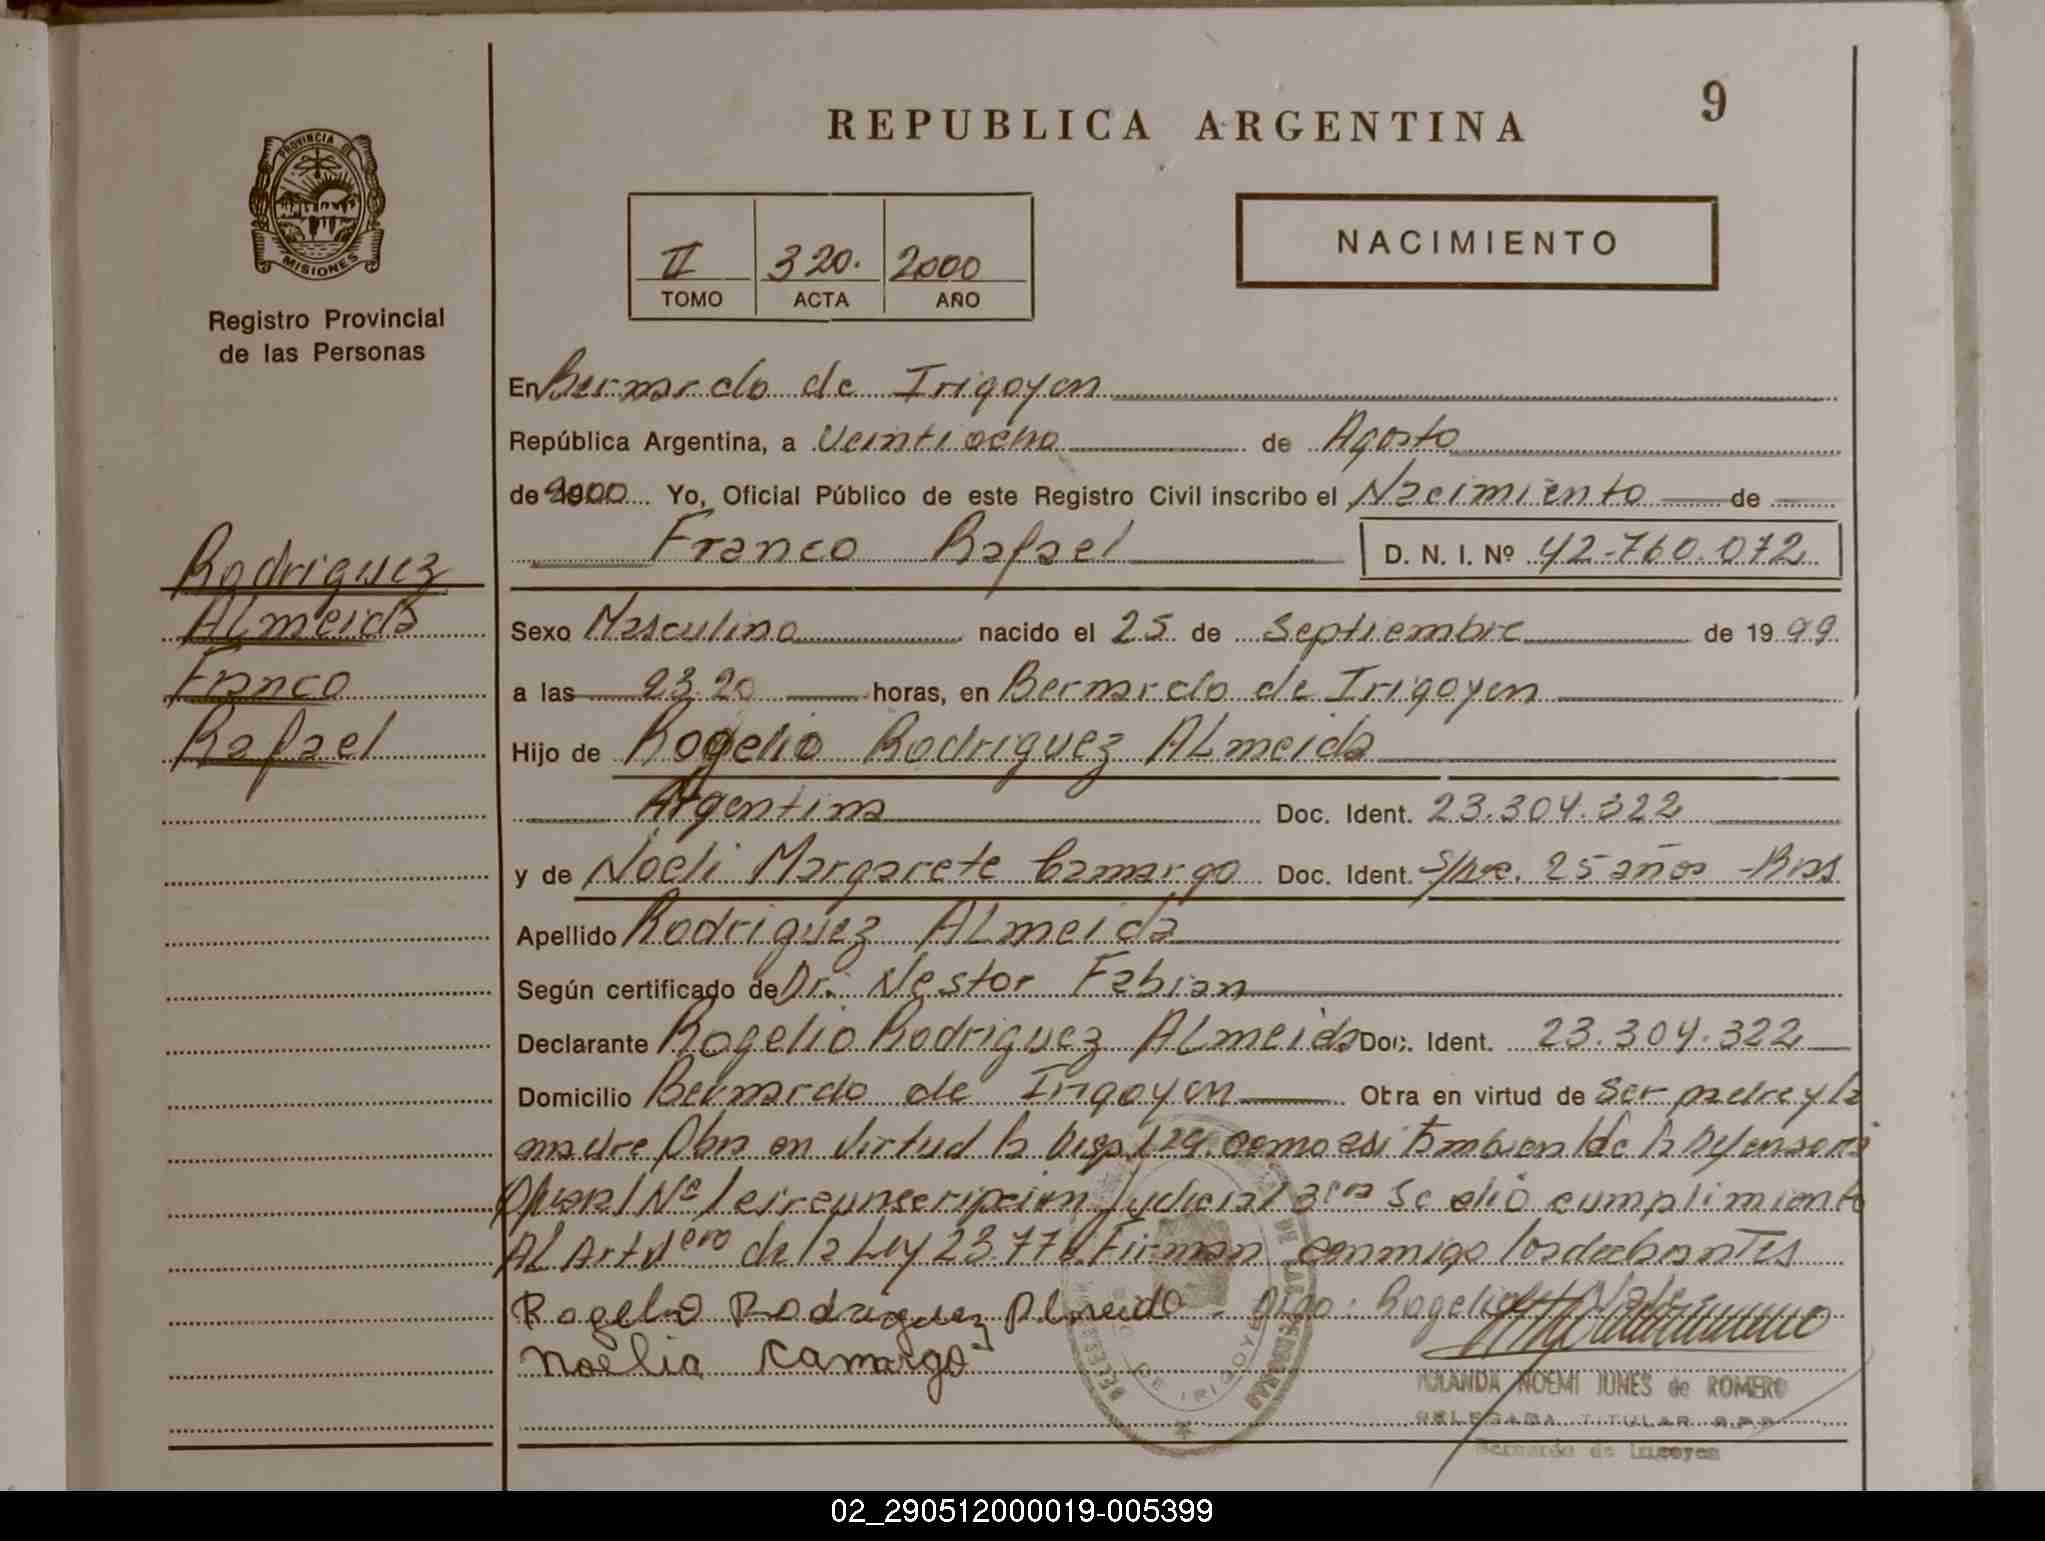 9
REPUBLICA ARGENTINA
PROVINCIA DE
MISIONES
Registro Provincial
de las Personas
II 320. 2000
TOMO ACTA AÑO
NACIMIENTO
En Bernardo de Irigoyen
República Argentina, a Veintiocho de Agosto
de 2000 Yo, Oficial Público de este Registro Civil inscribo el Nacimiento de
Franco Rafael D. N. I. Nº 42.760.072
Rodriguez
Almeida
Franco
Rafael
Sexo Masculino nacido el 25 de Septiembre de 1999
a las 23.20 horas, en Bernardo de Irigoyen
Hijo de Rogelio Rodriguez Almeida
Argentina Doc. Ident. 23.304.322
y de Noeli Margarete Camargo Doc. Ident. 25 años - Bras
Apellido Rodriguez Almeida
Según certificado de Dr. Nestor Fabian
Declarante Rogelio Rodriguez Almeida Doc. Ident. 23.304.322
Domicilio Bernardo de Irigoyen Obra en virtud de ser padre y la
madre Obra en virtud la Disp. como asi tambien de la Defensoria
Oficial Nº 1 circunscripcion Judicial 3era Se dió cumplimiento
AL Art 1ero de la Ley 23.776. Firman conmigo los declarantes
Rogelio Rodriguez Almeida. Digo: Rogelio
Noelia Camargo
YOLANDA NOEMI JUNES de ROMERO
DELEGADA TITULAR R.P.P.
Bernardo de Irigoyen
02_290512000019-005399